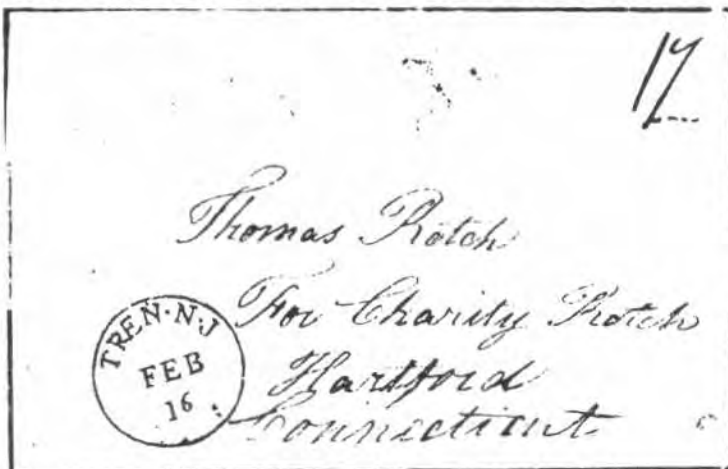 17
Thomas Rotch
For Charity Rotch
Hartford
Connecticut
TREN·N·J
FEB
16